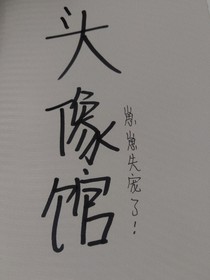 头像馆
崽崽失宠了！